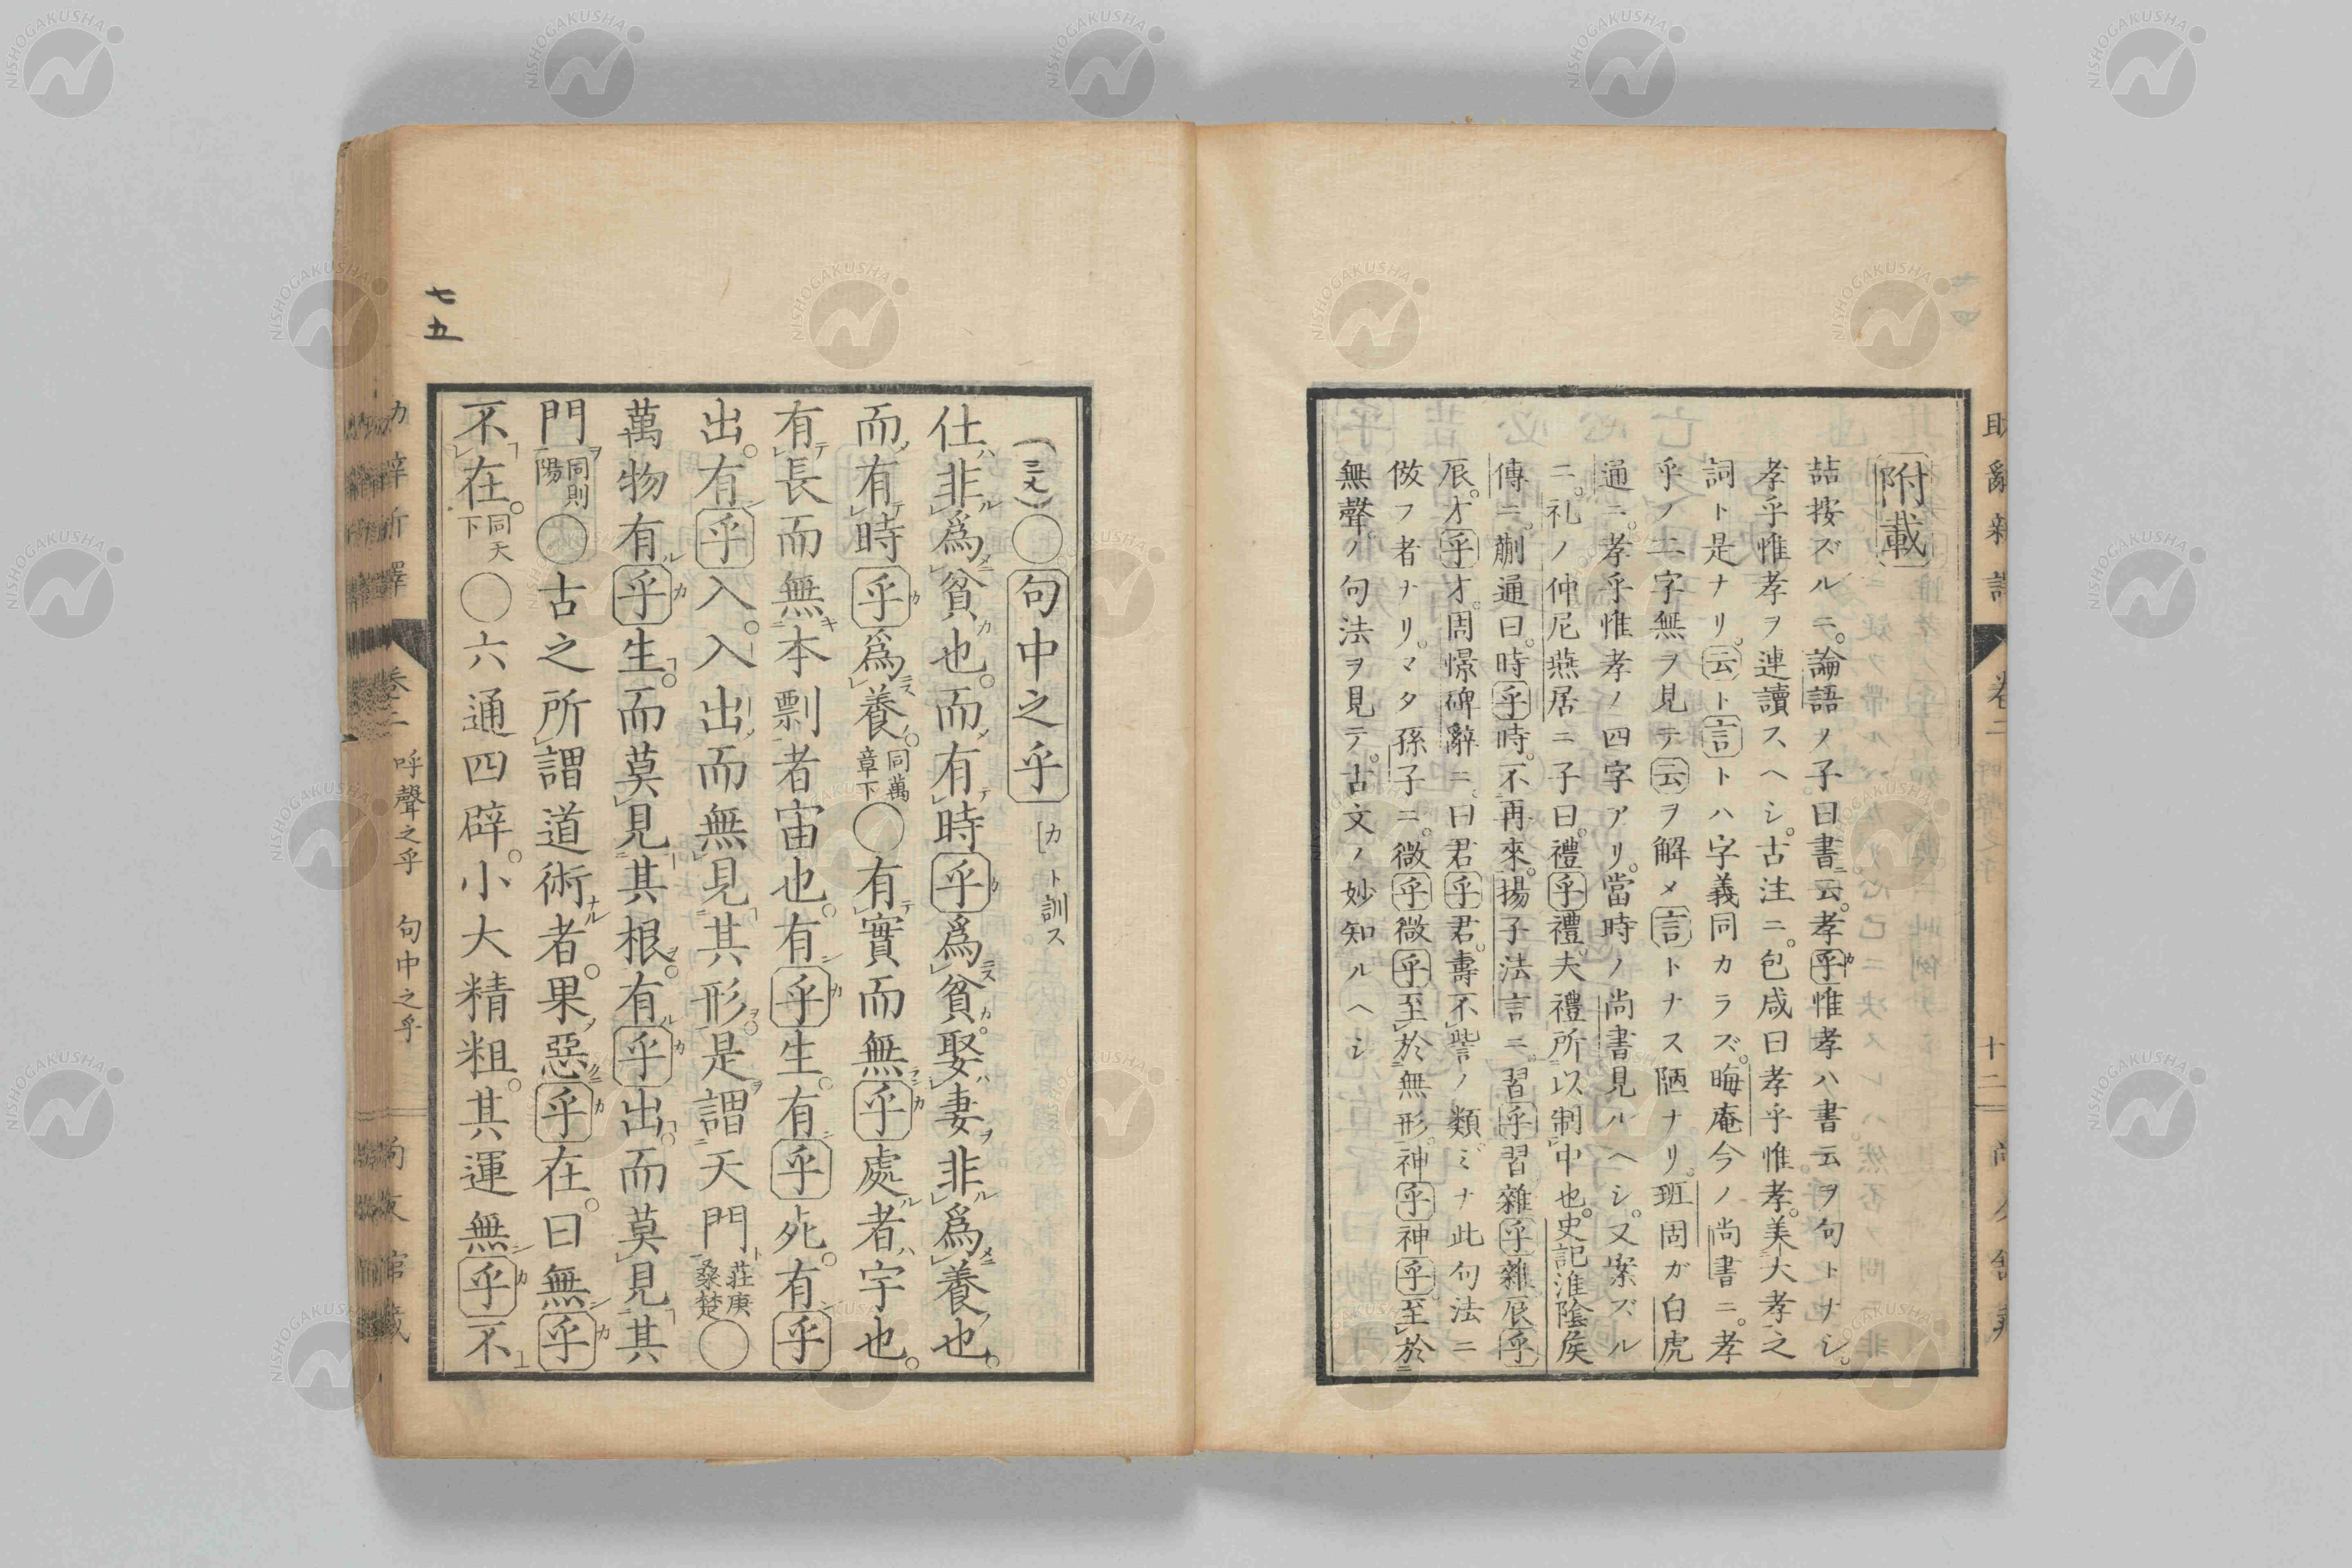 附載
喆按ズルニ。論語ノ子曰書云。孝乎惟孝ハ書云ヲ句トナシ。
孝乎惟孝ヲ連讀スヘシ。古注ニ。包咸曰孝乎惟孝。美大孝之
詞ト是ナリ。云ト言トハ字義同カラズ。晦庵今ノ尚書ニ。孝
乎ノ二字無ヲ見テ云ヲ解メ言トナス陋ナリ。班固ガ白虎
通ニ。孝乎惟孝ノ四字アリ。當時ノ尚書見ルヘシ。又案ズル
ニ。礼ノ仲尼燕居ニ子曰。禮乎禮。夫禮所以制中也。史記淮陰侯
傳ニ。蒯通曰。時乎時。不再來。揚子法言ニ。習乎習雜乎雜。辰乎
辰。才乎才。周憬碑辭ニ。曰君乎君。壽不訾ノ類ミナ此句法ニ
倣フ者ナリ。マタ孫子ニ。微乎微乎至於無形。神乎神乎。至於
無聲ノ句法ヲ見テ。古文ノ妙知ルヘシ
七五
〇句中之乎 カト訓ス
仕非爲貧也。而有時乎爲貧。娶妻非爲養也。
而有時乎爲養。同萬章下〇有實而無乎處者宇也。
有長而無本剽者宙也。有乎生。有乎死。有乎
出。有乎入。入出而無見其形。是謂天門莊庚桑楚〇
萬物有乎生。而莫見其根。有乎出。而莫見其
門同則陽〇古之所謂道術者。果惡乎在。曰無乎
不在。同天下〇六通四辟。小大精粗。其運無乎不
卷二 呼聲之乎 句中之乎